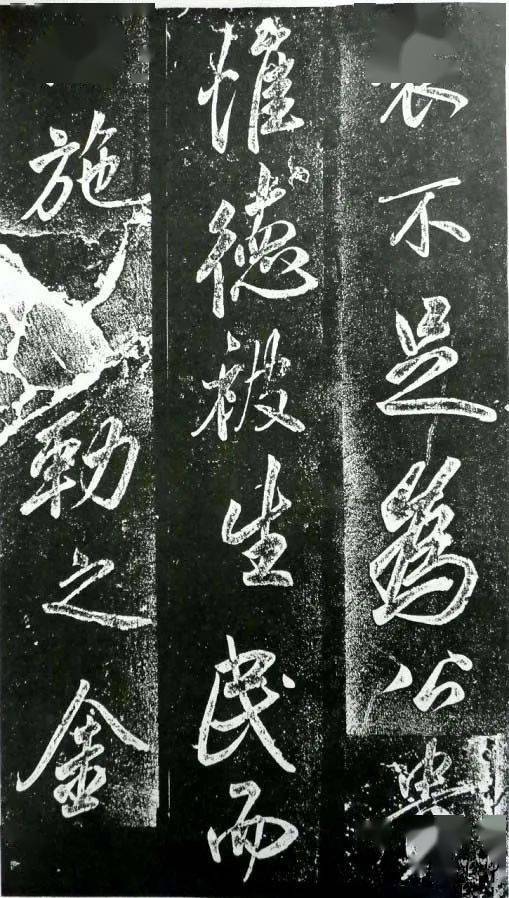 不足為公
惟德被生民而
施勒之金